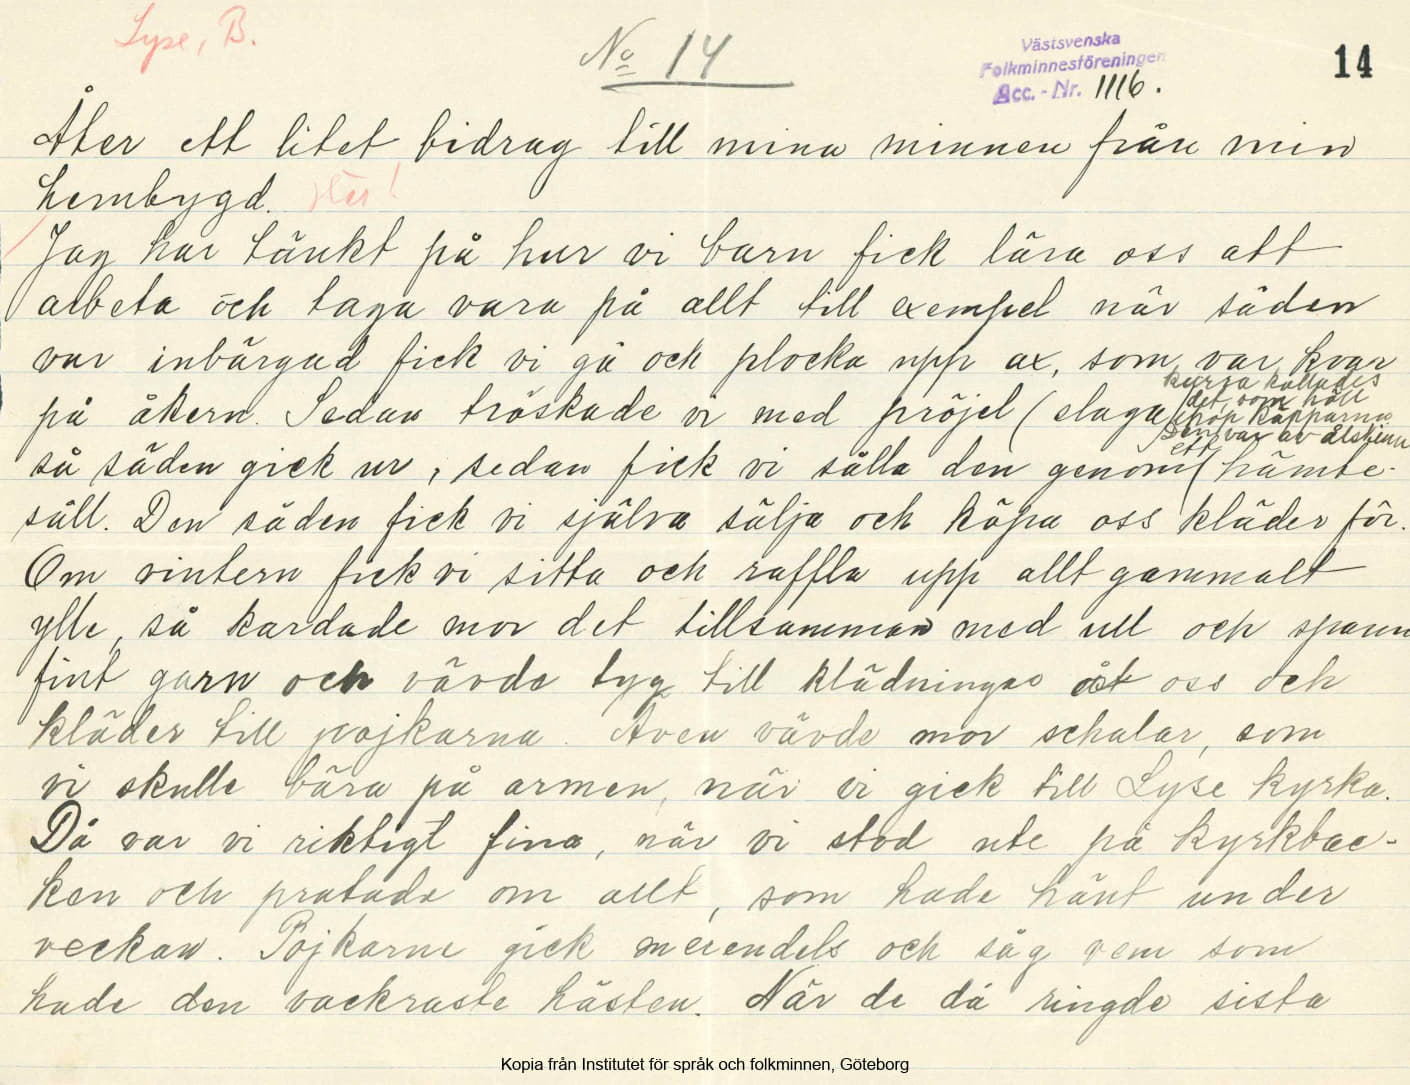 Lyse, B.
No 14
Västsvenska
Folkminnesföreningen
Acc. - Nr. 1116.
14
Åter ett litet bidrag till mina minnen från min
hembygd.
Jag har tänkt på hur vi barn fick lära oss att
arbeta och taga vara på allt till exempel när säden
var inbärgad fick vi gå och plocka upp ax, som var kvar
på åkern. Sedan tröskade vi med pröjel (slaga
kallades
det, som höll
ihop käpparna
Den var av ålskinn
så säden gick ur, sedan fick vi sålla den genom ett
såll. Den säden fick vi själva sälja och köpa oss kläder för.
Om vintern fick vi sitta och raffla upp allt gammalt
ylle, så kardade mor det tillsamman med ull och spann
fint garn och vävde tyg till klädningar åt oss och
kläder till pojkarna. Även vävde mor schalar, som
vi skulle bära på armen, när vi gick till Lyse kyrka.
Då var vi riktigt fina, när vi stod ute på kyrkbac-
ken och pratade om allt, som hade hänt under
veckan. Pojkarne gick meiendels och såg vem som
hade den vackraste hästen. När de då ringde sista
Kopia från Institutet för språk och folkminnen, Göteborg